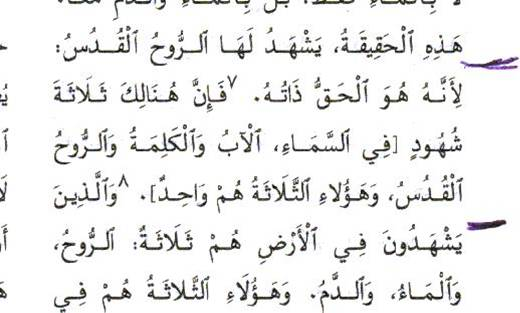 هَذِهِ ٱلْحَقِيقَةُ، يَشْهَدُ لَهَا ٱلـرُّوحُ ٱلْقُـدُسُ:
لِأَنَّـهُ هُوَ ٱلْحَقُّ ذَاتُـهُ. ٧فَإِنَّ هُنَالِكَ ثَـلَاثَةَ
شُهُودٍ [فِي ٱلسَّمَاءِ، ٱلْآبُ وَٱلْكَلِمَـةُ وَٱلـرُّوحُ
ٱلْقُدُسُ، وَهَـؤُلاءِ ٱلثَّلاثَةُ هُمْ وَاحِـدٌ]. ٨وَٱلَّذِينَ
يَشْهَـدُونَ فِـي ٱلْأَرْضِ هُـمْ ثَـلَاثَـةٌ: ٱلـرُّوحُ،
وَٱلْـمَـاءُ، وَٱلـدَّمُ. وَهَـؤُلَاءِ ٱلثَّـلَاثَـةُ هُـمْ فِـي